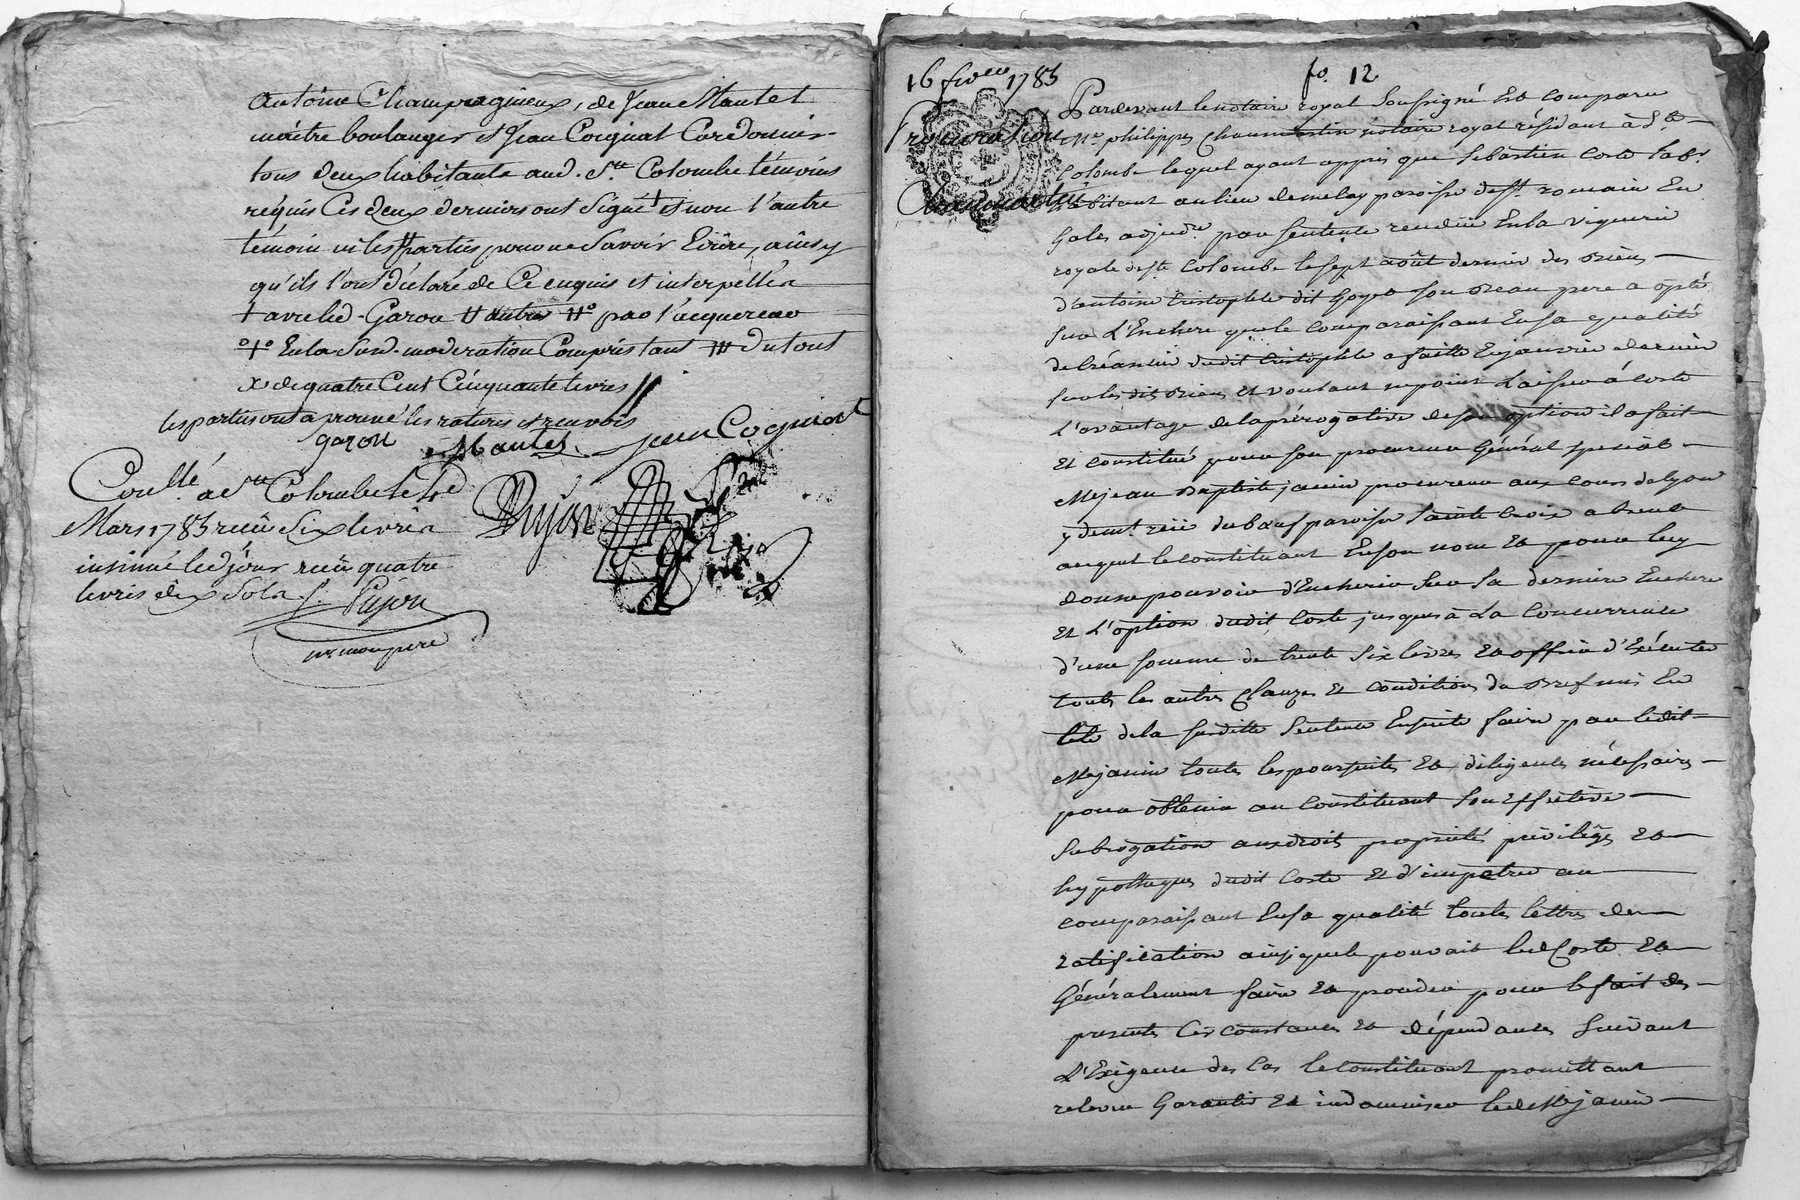 antoine Champagneux, de Jean Mantel
maitre boulanger et Jean Cocgnat Cordonnier
tous deux habitants aud. Ste Colombe témoins
requis Ces deux derniers ont Signé + et non l'autre
témoin ni les parties pour ne Savoir Ecrire, ainsy
qu'ils l'ont déclaré de Ce enquis et interpellés
+ avec led. Garon # autre #° par l'acquereur
°+° En la Susd. moderation Compris tant # du tout
x de quatre Cent Cinquante livres //
les parties ont aprouvé les ratures et renvois
garon Mantel Jean Cocgniat
Conllé. a Ste Colombe le
Mars 1785 reçu Six livres
insinué led jour reçu quatre
livres dix Sols Pujon
pr. mon pere
Dujon
16 fivrier 1785 fo. 12
Procuration
Chaumartin
Pardevant le notaire royal Soussigné Est comparu
Me. philippe Chaumartin notaire royal résidant à Ste
Colombe lequel ayant appris que Sebastien Coste labr
habitant au lieu de melay paroisse de St. romain En
Gales adjudre. par Sentence rendüe En la viguerie
royale de Ste Colombe le sept août dernier des Biens
d'antoine Cristophle dit Goyet Son Beau pere a opté
Sur L'Enchere que le comparaissant En Sa qualité
de Créancier dudit Cristophle a faitte En janvier dernier
Sur lesdits Biens Et voulant ne point Laisser à Coste
L'avantage de la prérogative de Son option il a fait
Et constitué pour Son procureur Général Special
Me jean Baptiste janin procureur aux cours de Lyon
y demt. rüe du bœuf paroisse Sainte Croix absent
auquel le constituant En Son nom Et pour luy
donne pouvoir d'Encherir Sur la derniere Enchere
Et L'option dudit Coste jusques à La Concurrence
d'une Somme de trente Six livres Et offrir d'Exécuter
toutes les autres Clauzes Et conditions du Bref mis En
tête de la Susditte Sentence Ensuite faire par ledit
Me janin toutes les poursuites Et diligences nécessaires
pour obtenir au Constituant Son Effective
Subrogation aux droits proprietés privilèges Et
hypotheques dudit Coste Et d'impetrer au
comparaissant En Sa qualité toutes lettres de
ratification ainsy que le pouvait led Coste Et
Généralement faire Et proceder pour le fait des
presentes Circonstances Et dépendances Suivant
L'Exigence des Cas le Constituant promettant
relever Garantir Et indemniser led Me janin